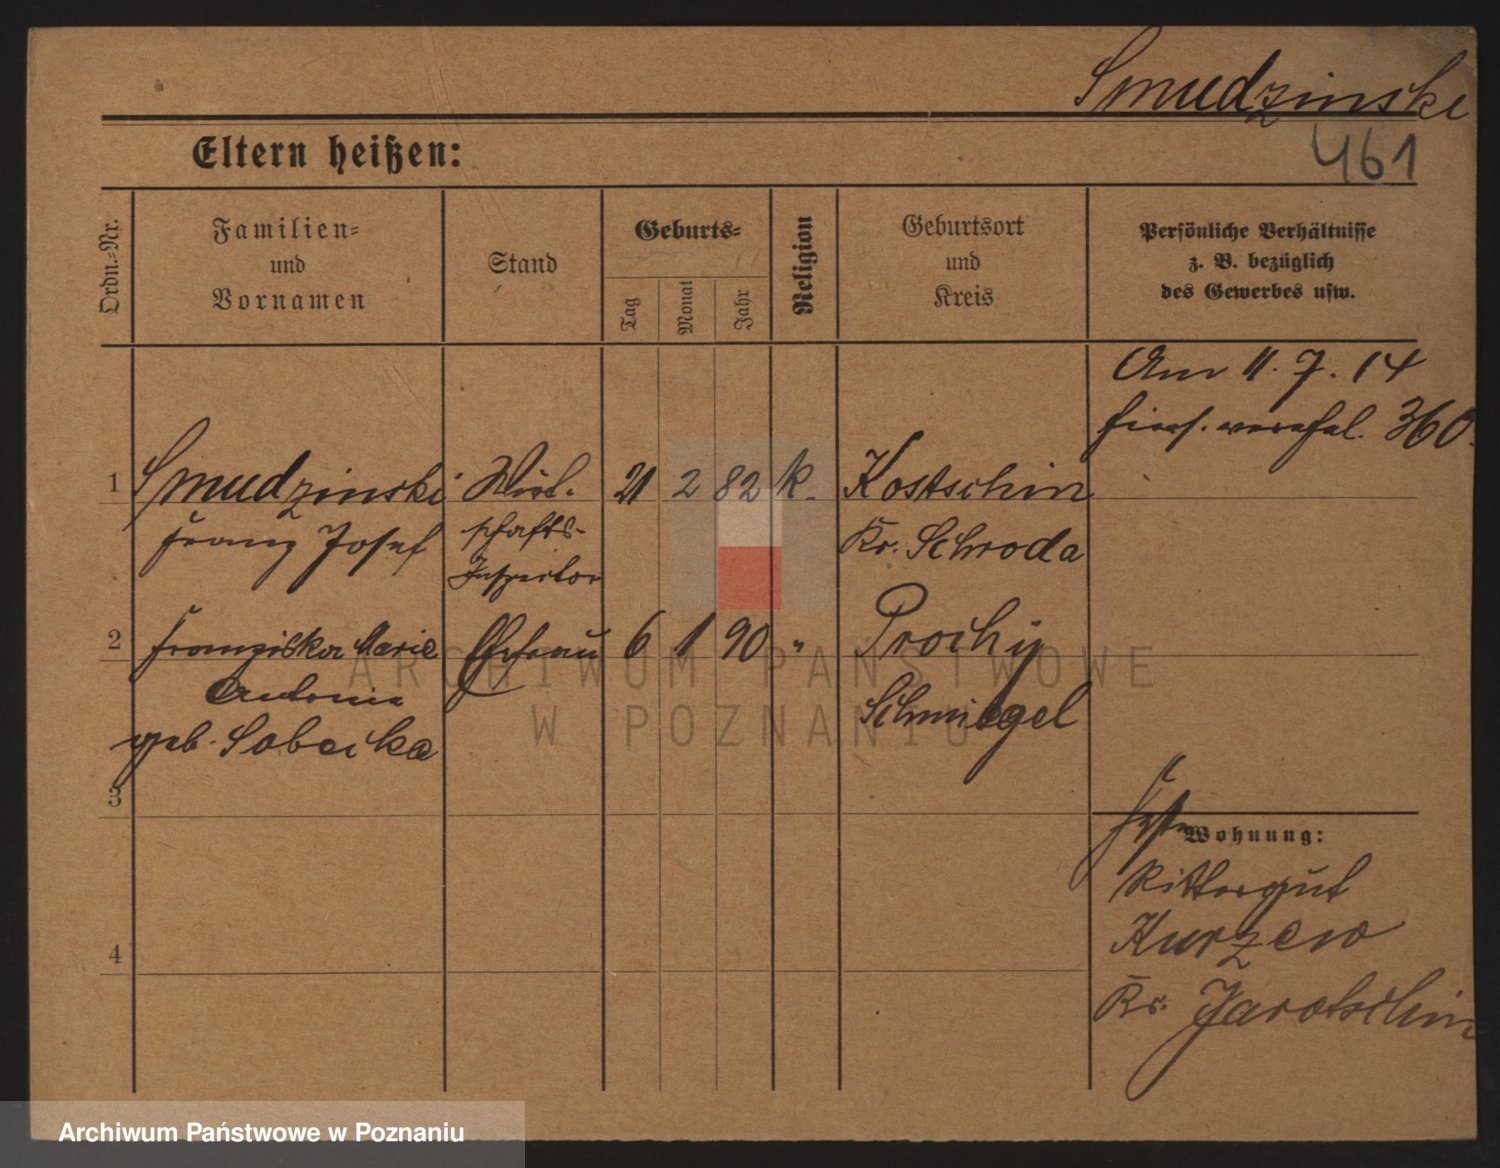 Smudzinski
461
Eltern heißen:
Ordn.-Nr.
Familien-
und
Vornamen
Stand
Geburts-
Tag
Monat
Jahr
Religion
Geburtsort
und
Kreis
Persönliche Verhältnisse
z. B. bezüglich
des Gewerbes usw.
Am 11. 7. 14
hiers. verehel. 360.
1 Smudzinski Wirt- 21 2 82 k. Kostschin
Franz Josef schafts- Kr. Schroda
Inspector
2 Franziska Marie Ehefrau 6 1 90 " Prochy
Antonie Schmiegel
geb. Sobecka
3
Wohnung:
Rittergut
Kurzew
4
Kr. Jarotschin
ARCHIWUM PAŃSTWOWE
W POZNANIU
Archiwum Państwowe w Poznaniu